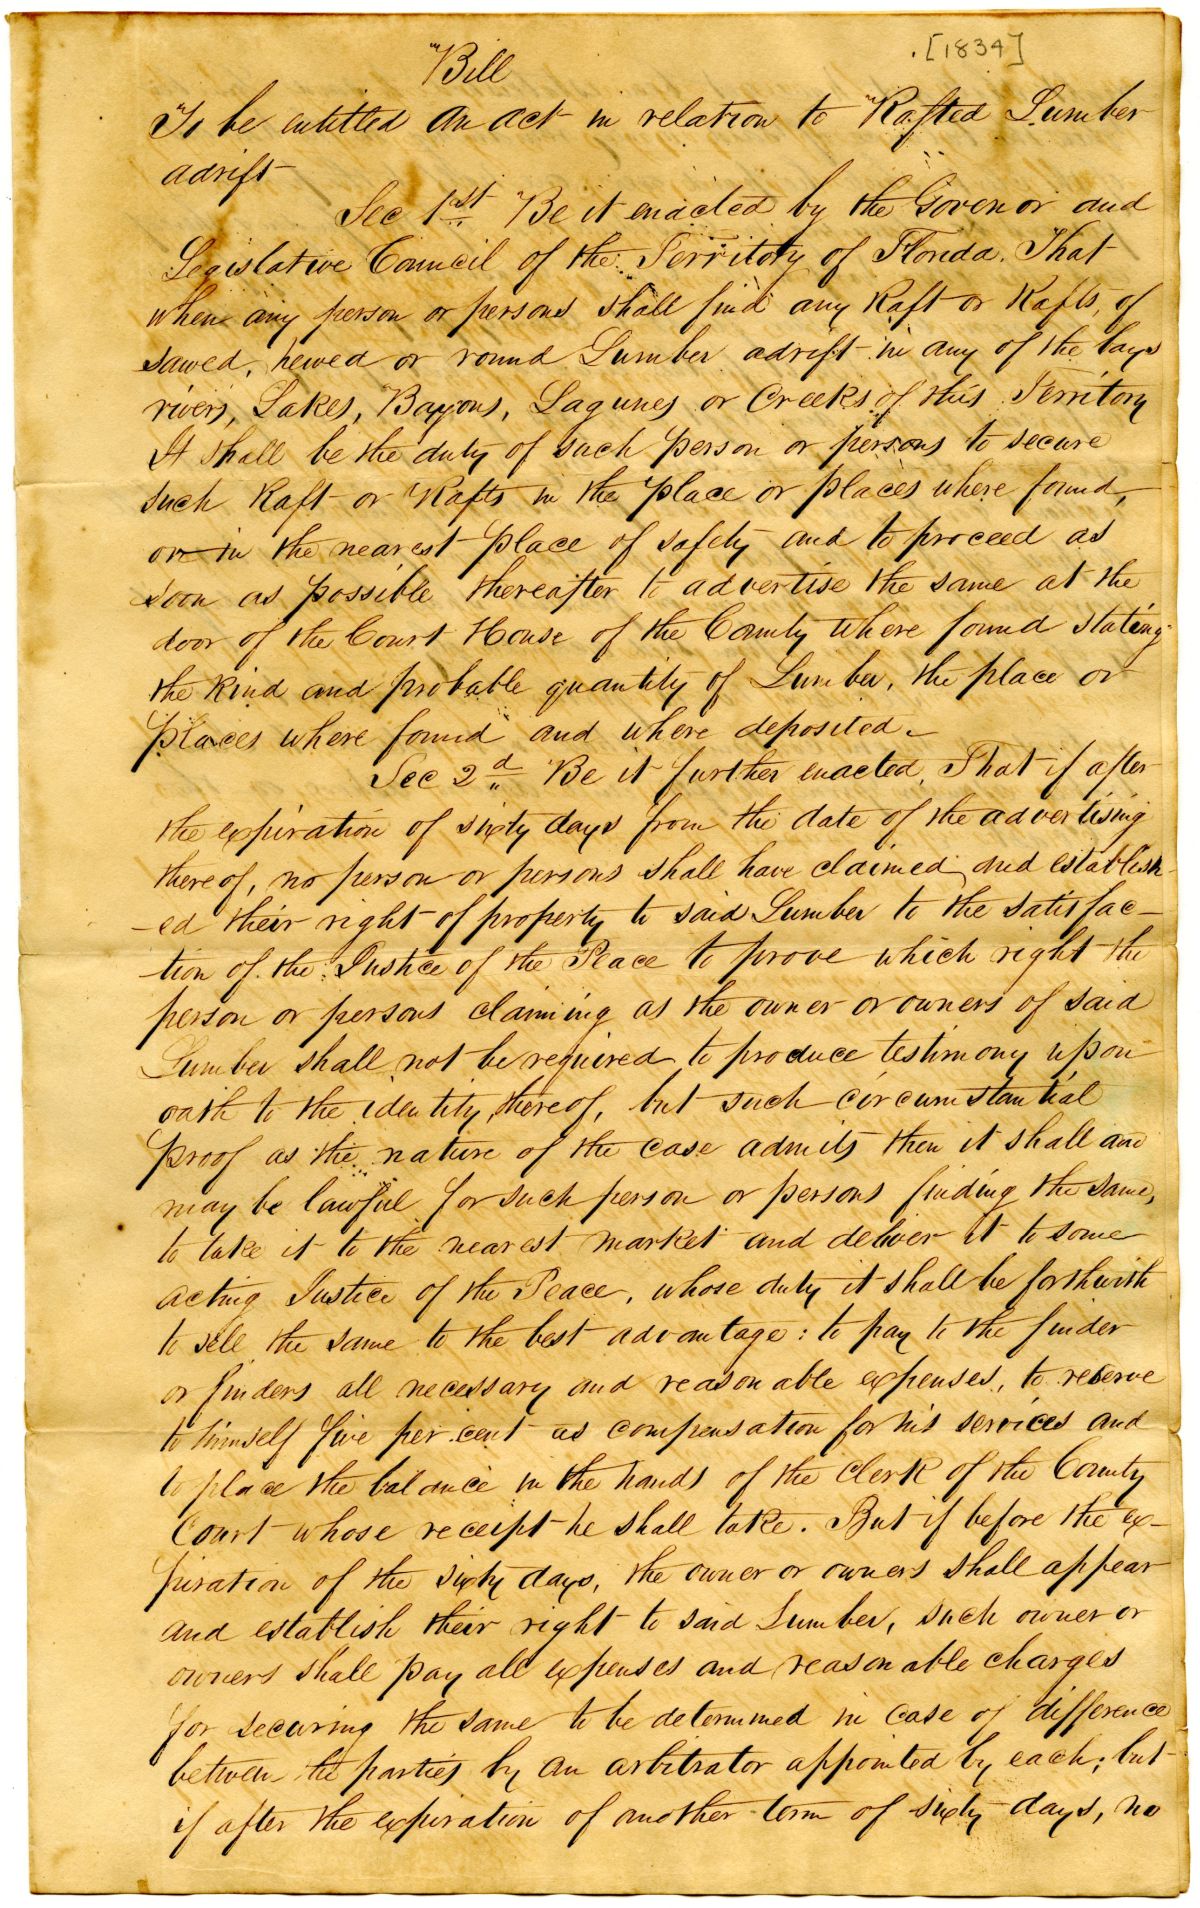 [1834]
Bill
To be entitled An act in relation to Rafted Lumber
adrift
Sec 1st Be it enacted by the Govenor and
Legislative Council of the Territory of Florida. That
when any person or persons shall find any Raft or Rafts, of
sawed, hewed or round Lumber adrift in any of the bays
rivers, Lakes, Bayous, Lagunes or Creeks of this Territory
It shall be the duty of such person or persons to secure
such Raft or Rafts in the place or places where found,
or in the nearest place of safety and to proceed as
soon as possible thereafter to advertise the same at the
door of the Court House of the County where found stating
the kind and probable quantity of Lumber, the place or
places where found and where deposited.
Sec 2d Be it further enacted, That if after
the expiration of sixty days from the date of the advertising
thereof, no person or persons shall have claimed and establish
-ed their right of property to said Lumber to the satisfac-
tion of the Justice of the Peace to prove which right the
person or persons claiming as the owner or owners of said
Lumber shall not be required to produce testimony upon
oath to the identity thereof, but such circumstantial
proof as the nature of the case admits then it shall and
may be lawful for such person or persons finding the same,
to take it to the nearest market and deliver it to some
acting Justice of the Peace, whose duty it shall be forthwith
to sell the same to the best advantage: to pay to the finder
or finders all necessary and reasonable expenses, to reserve
to himself five per cent as compensation for his services and
to place the balance in the hands of the Clerk of the County
Court whose receipt he shall take. But if before the ex-
piration of the sixty days, the owner or owners shall appear
and establish their right to said Lumber, such owner or
owners shall pay all expenses and reasonable charges
for securing the same to be determined in case of difference
between the parties by an arbitrator appointed by each; but
if after the expiration of another term of sixty days, no